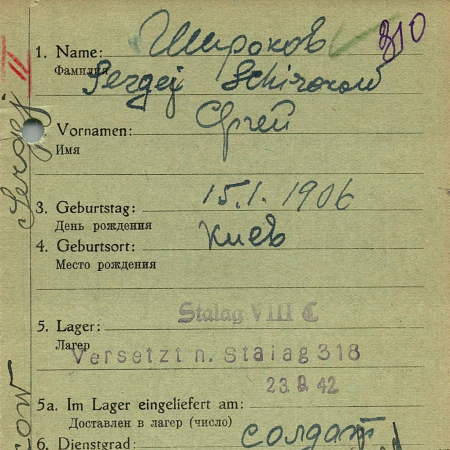 310
1. Name: Широков
Фамилия
Sergej Schirokow
Vornamen: Сргей
Имя
3. Geburtstag: 15.1. 1906
День рождения
4. Geburtsort: Киев
Место рождения
Stalag VIII C
5. Lager:
Лагер
Versetzt n. Stalag 318
23.9.42
5a. Im Lager eingeliefert am:
Доставлен в лагер (число)
6. Dienstgrad: солдат
Sergej